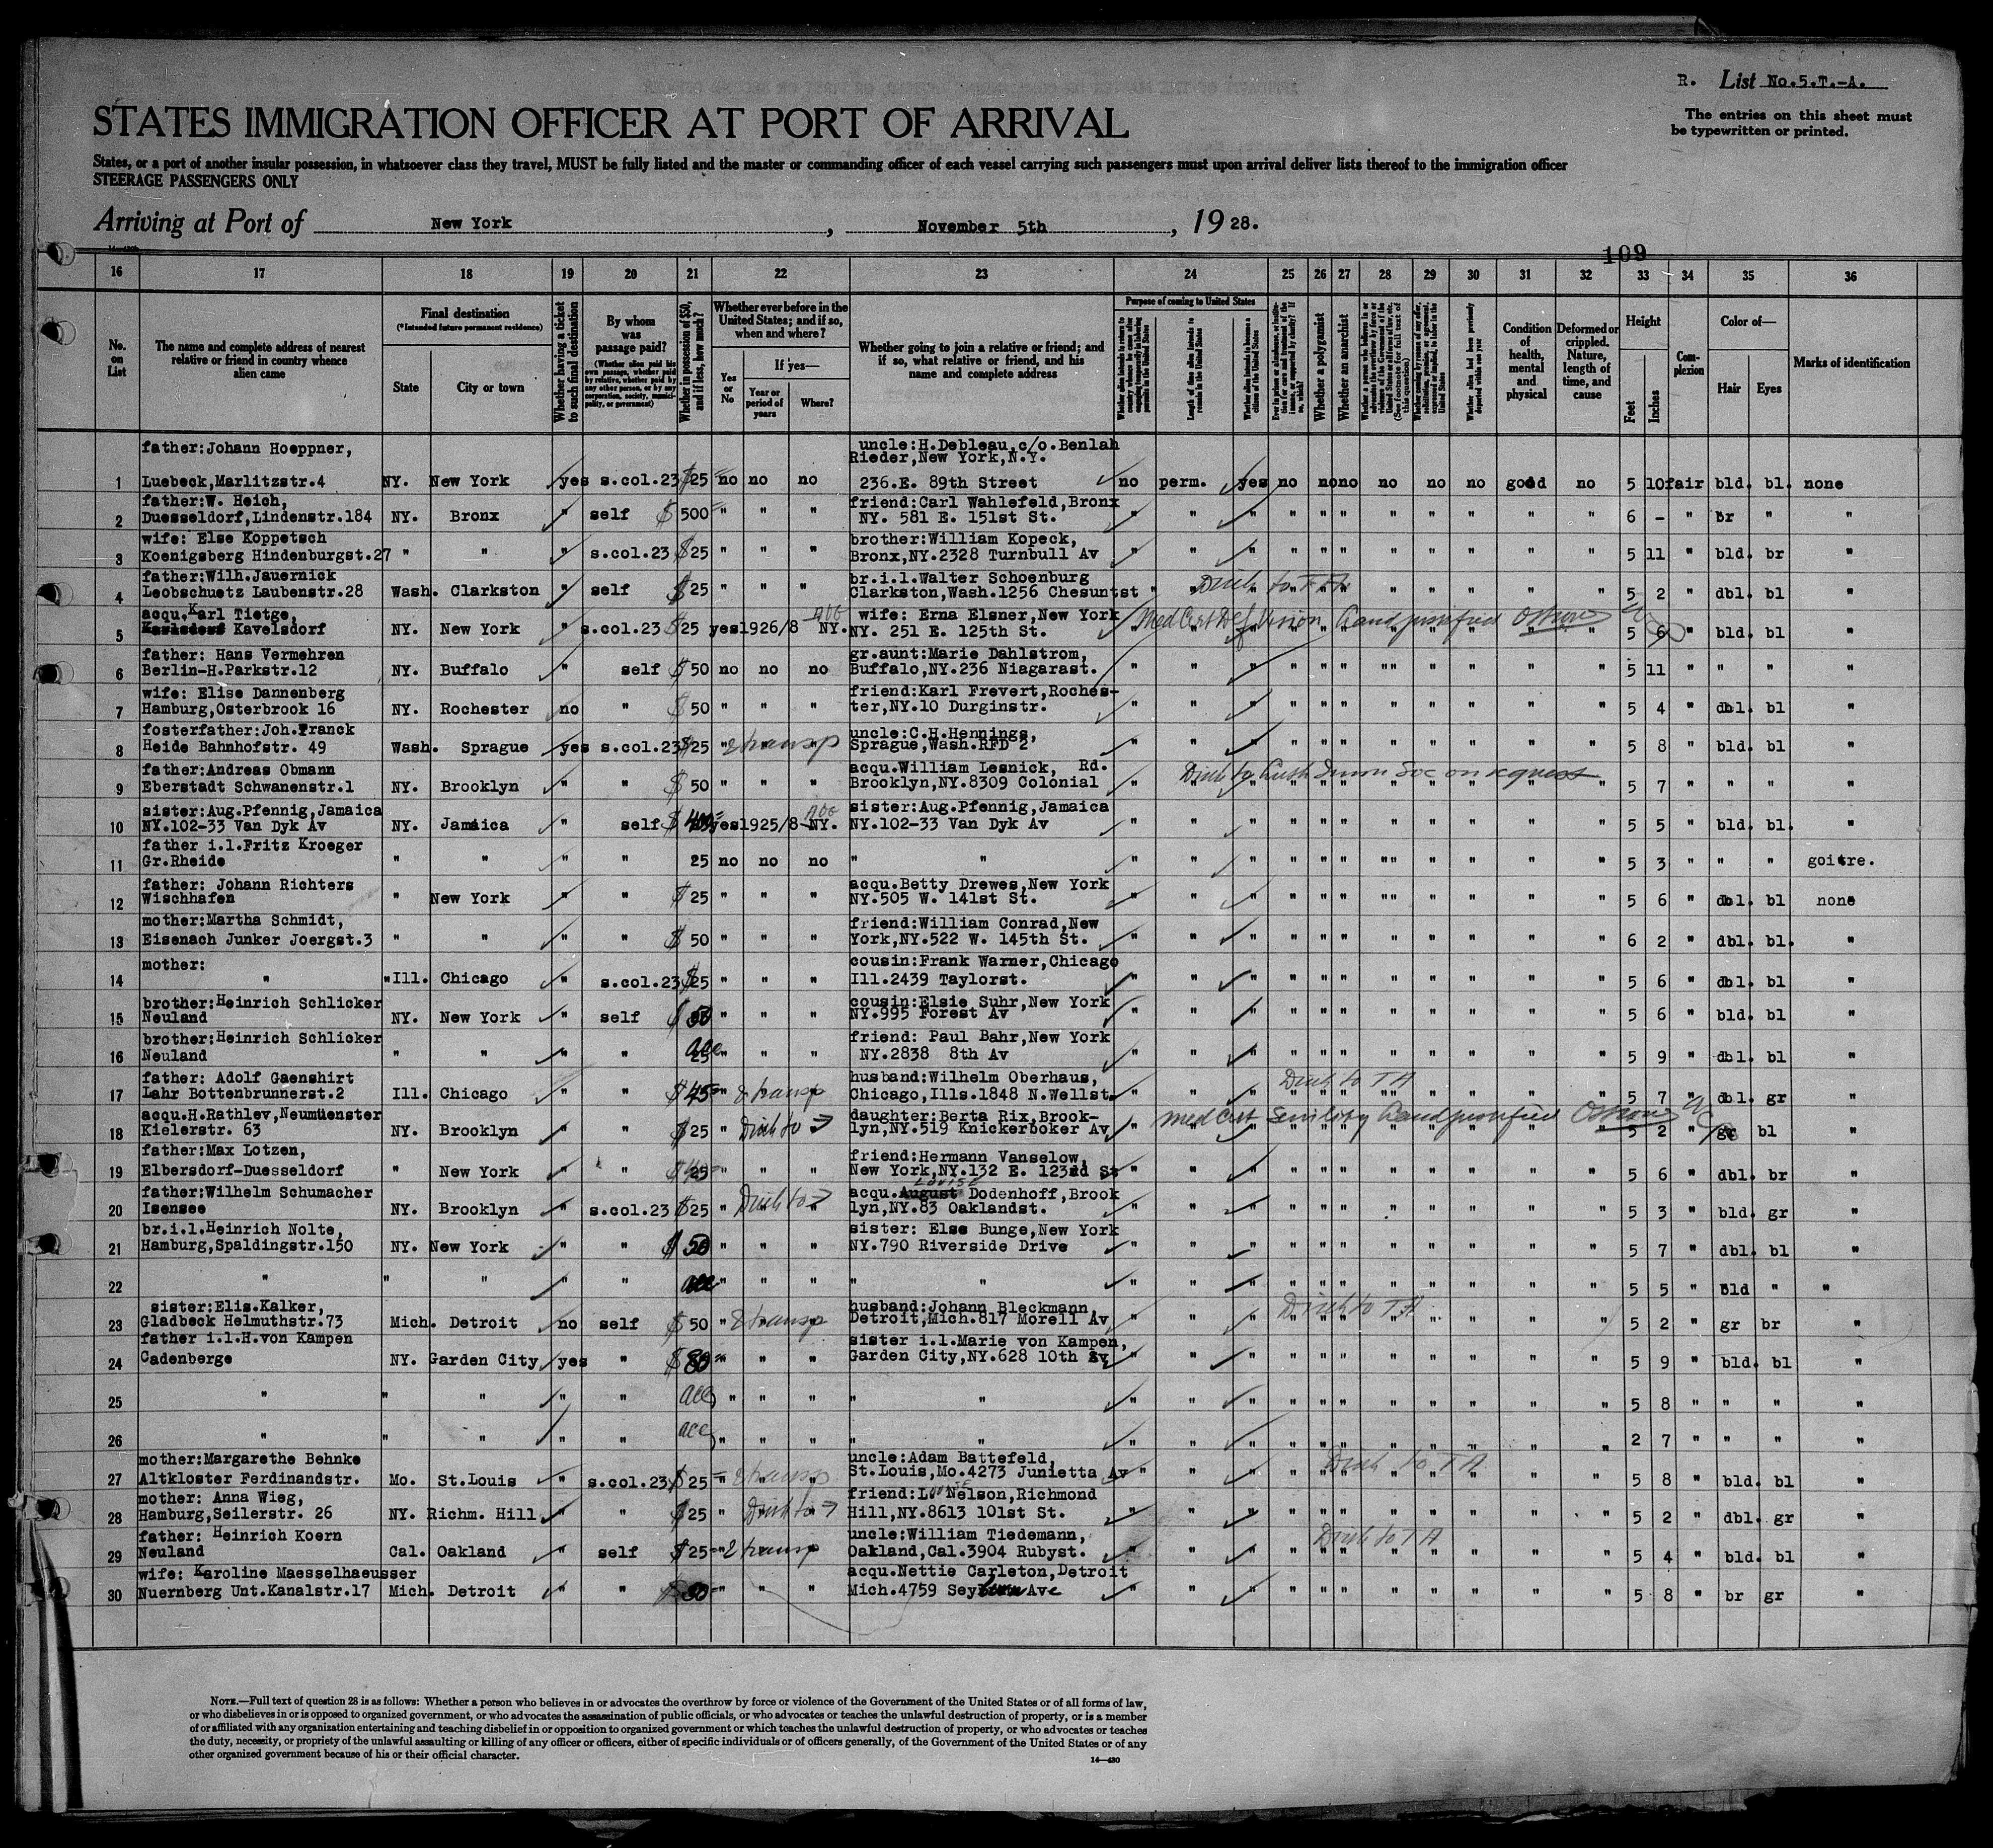 R. List No.5.T.-A.
The entries on this sheet must
be typewritten or printed.
STATES IMMIGRATION OFFICER AT PORT OF ARRIVAL
States, or a port of another insular possession, in whatsoever class they travel, MUST be fully listed and the master or commanding officer of each vessel carrying such passengers must upon arrival deliver lists thereof to the immigration officer
STEERAGE PASSENGERS ONLY
Arriving at Port of New York, November 5th, 1928.
109
16 17 18 19 20 21 22 23 24 25 26 27 28 29 30 31 32 33 34 35 36
No. on List
The name and complete address of nearest relative or friend in country whence alien came
Final destination
(*Intended future permanent residence)
State
City or town
Whether having a ticket to such final destination
By whom was passage paid?
(Whether alien paid his own passage, whether paid by relative, whether paid by any other person, or by any corporation, society, municipality, or government)
Whether in possession of $50, and if less, how much?
Whether ever before in the United States; and if so, when and where?
Yes or No
If yes—
Year or period of years
Where?
Whether going to join a relative or friend; and if so, what relative or friend, and his name and complete address
Purpose of coming to United States
Whether a polygamist
Whether an anarchist
Condition of health, mental and physical
Deformed or crippled. Nature, length of time, and cause
Height
Feet
Inches
Complexion
Color of—
Hair
Eyes
Marks of identification
father:Johann Hoeppner, uncle:H.Debleau,c/o.Benlah
Rieder,New York,N.Y.
1 Luebeck,Marlitzstr.4 NY. New York yes s.col.23 $25 no no no 236.E. 89th Street no perm. yes no no no no no no good no 5 10 fair bld. bl. none
father:W. Heich, friend:Carl Wahlefeld,Bronx
2 Duesseldorf,Lindenstr.184 NY. Bronx " self $500 " " " NY. 581 E. 151st St. " " " " " " " " " " " 6 - " br " "
wife: Else Koppetsch brother:William Kopeck,
3 Koenigsberg Hindenburgst.27 " " " s.col.23 $25 " " " Bronx,NY.2328 Turnbull Av " " " " " " " " " " " 5 11 " bld. br "
father:Wilh.Jauernick br.i.l.Walter Schoenburg
4 Leobschuetz Laubenstr.28 Wash. Clarkston " self $25 " " " Clarkston,Wash.1256 Chesuntst " " " " " " " " " " 5 2 " dbl. bl "
acqu.Karl Tietge, wife: Erna Elsner,New York
5 Kavelsdorf NY. New York " s.col.23 $25 yes 1926/8 NY. NY. 251 E. 125th St. Med Cert Def Vision " " " " " " " " " " 5 6 " bld. bl "
father: Hans Vermehren gr.aunt:Marie Dahlstrom,
6 Berlin-H.Parkstr.12 NY. Buffalo " self $50 no no no Buffalo,NY.236 Niagarast. " " " " " " "" " " " " 5 11 " " " "
wife: Elise Dannenberg friend:Karl Frevert,Roches-
7 Hamburg,Osterbrook 16 NY. Rochester no " $50 " " " ter,NY.10 Durginstr. " " " " " " " " " " " 5 4 " dbl. bl "
fosterfather:Joh.Franck uncle:C.H.Hennings,
8 Heide Bahnhofstr. 49 Wash. Sprague yes s.col.23 $25 " & transp Sprague,Wash.RFD 2 " " " " " " " " " " " 5 8 " bld. bl "
father:Andreas Obmann acqu.William Lesnick, Rd.
9 Eberstadt Schwanenstr.1 NY. Brooklyn " " $50 " " " Brooklyn,NY.8309 Colonial " " " " " " " " " " " 5 7 " " " "
sister:Aug.Pfennig,Jamaica sister:Aug.Pfennig,Jamaica
10 NY.102-33 Van Dyk Av NY. Jamaica " self $ yes 1925/8 NY. NY.102-33 Van Dyk Av " " " " " " " " " " " 5 5 " bld. bl. "
father i.l.Fritz Kroeger
11 Gr.Rheide " " " " 25 no no no " " " " " " " " "" " " " " 5 3 " " " goitre.
father: Johann Richters acqu.Betty Drewes,New York
12 Wischhafen " New York " " $25 " " " NY.505 W. 141st St. " " " " " " "" " " " " 5 6 " dbl. bl none
mother:Martha Schmidt, friend:William Conrad,New
13 Eisenach Junker Joergst.3 " " " " $50 " " " York,NY.522 W. 145th St. " " " " " " " " " " " 6 2 " dbl. bl. "
mother: cousin:Frank Warner,Chicago
14 " "Ill. Chicago " s.col.23 $25 " " " Ill.2439 Taylorst. " " " " " " " " " " " 5 6 " dbl. bl "
brother:Heinrich Schlicker cousin:Elsie Suhr,New York
15 Neuland NY. New York " self $50 " " " NY.995 Forest Av " " " " " " " " " " " 5 6 " bld. bl "
brother:Heinrich Schlicker friend: Paul Bahr,New York
16 Neuland " " " " acc " " " NY.2838 8th Av " " " " " " " " " " " 5 9 " dbl. bl "
father: Adolf Gaenshirt husband:Wilhelm Oberhaus, Disch to T A
17 Lahr Bottenbrunnerst.2 Ill. Chicago " " $45 " & transp Chicago,Ills.1848 N.Wellst. " " " " " " " " " " " 5 7 " dbl. gr "
acqu.H.Rathlev,Neumuenster daughter:Berta Rix,Brook- Med Cert Senility
18 Kielerstr. 63 NY. Brooklyn " " $25 " Disch to lyn,NY.519 Knickerboker Av " " " " " " " " " " " 5 2 " gr bl "
father:Max Lotzen, friend:Hermann Vanselow,
19 Elbersdorf-Duesseldorf " New York " " $ " " " New York,NY.132 E. 123rd St " " " " " " " " " " " 5 6 " dbl. br "
father:Wilhelm Schumacher acqu.August Louise Dodenhoff,Brook
20 Isensee NY. Brooklyn " s.col.23 $25 " Disch to lyn,NY.83 Oaklandst. " " " " " " " " " " " 5 3 " bld. gr "
br.i.l.Heinrich Nolte, sister: Else Bunge,New York
21 Hamburg,Spaldingstr.150 NY. New York " " $50 " " " NY.790 Riverside Drive " " " " " " " " " " " 5 7 " dbl. bl "
22 " " " " " acc " " " " " " " " " " " " " " " " " 5 5 " Bld " "
sister:Elis.Kalker, husband:Johann Bleckmann, Disch to T A
23 Gladbeck Helmuthstr.73 Mich. Detroit no self $50 " & transp Detroit,Mich.817 Morell Av " " " " " " " " " " " 5 2 " gr br "
father i.l.H.von Kampen sister i.l.Marie von Kampen,
24 Cadenberge NY. Garden City yes " $80 " " " Garden City,NY.628 10th Av " " " " " " " " " " " 5 9 " bld. bl "
25 " " " " " acc " " " " " " " " " " " " " " " " " 5 8 " " " "
26 " " " " " acc " " " " " " " " " " " " " " " " " 2 7 " " " "
mother:Margarethe Behnke uncle:Adam Battefeld, Disch to T A
27 Altkloster Ferdinandstr. Mo. St.Louis " s.col.23 $25 " & transp St.Louis,Mo.4273 Junietta Av " " " " " " " " " " " 5 8 " bld. bl "
mother: Anna Wieg, friend:Louise Nelson,Richmond
28 Hamburg,Seilerstr. 26 NY. Richm. Hill " " $25 " Disch to Hill,NY.8613 101st St. " " " " " " " " " " " 5 2 " dbl. gr "
father: Heinrich Koern uncle:William Tiedemann, Disch to T A
29 Neuland Cal. Oakland " self $25 " & transp Oakland,Cal.3904 Rubyst. " " " " " " " " " " " 5 4 " bld. bl "
wife: Karoline Maesselhaeusser acqu.Nettie Carleton,Detroit
30 Nuernberg Unt.Kanalstr.17 Mich. Detroit " " $ " " " Mich.4759 Seyburn Ave " " " " " " " " " " " 5 8 " br gr "
NOTE.—Full text of question 28 is as follows: Whether a person who believes in or advocates the overthrow by force or violence of the Government of the United States or of all forms of law,
or who disbelieves in or is opposed to organized government, or who advocates the assassination of public officials, or who advocates or teaches the unlawful destruction of property, or is a member
of or affiliated with any organization entertaining and teaching disbelief in or opposition to organized government or which teaches the unlawful destruction of property, or who advocates or teaches
the duty, necessity, or propriety of the unlawful assaulting or killing of any officer or officers, either of specific individuals or of officers generally, of the Government of the United States or of any
other organized government because of his or their official character.
14—430